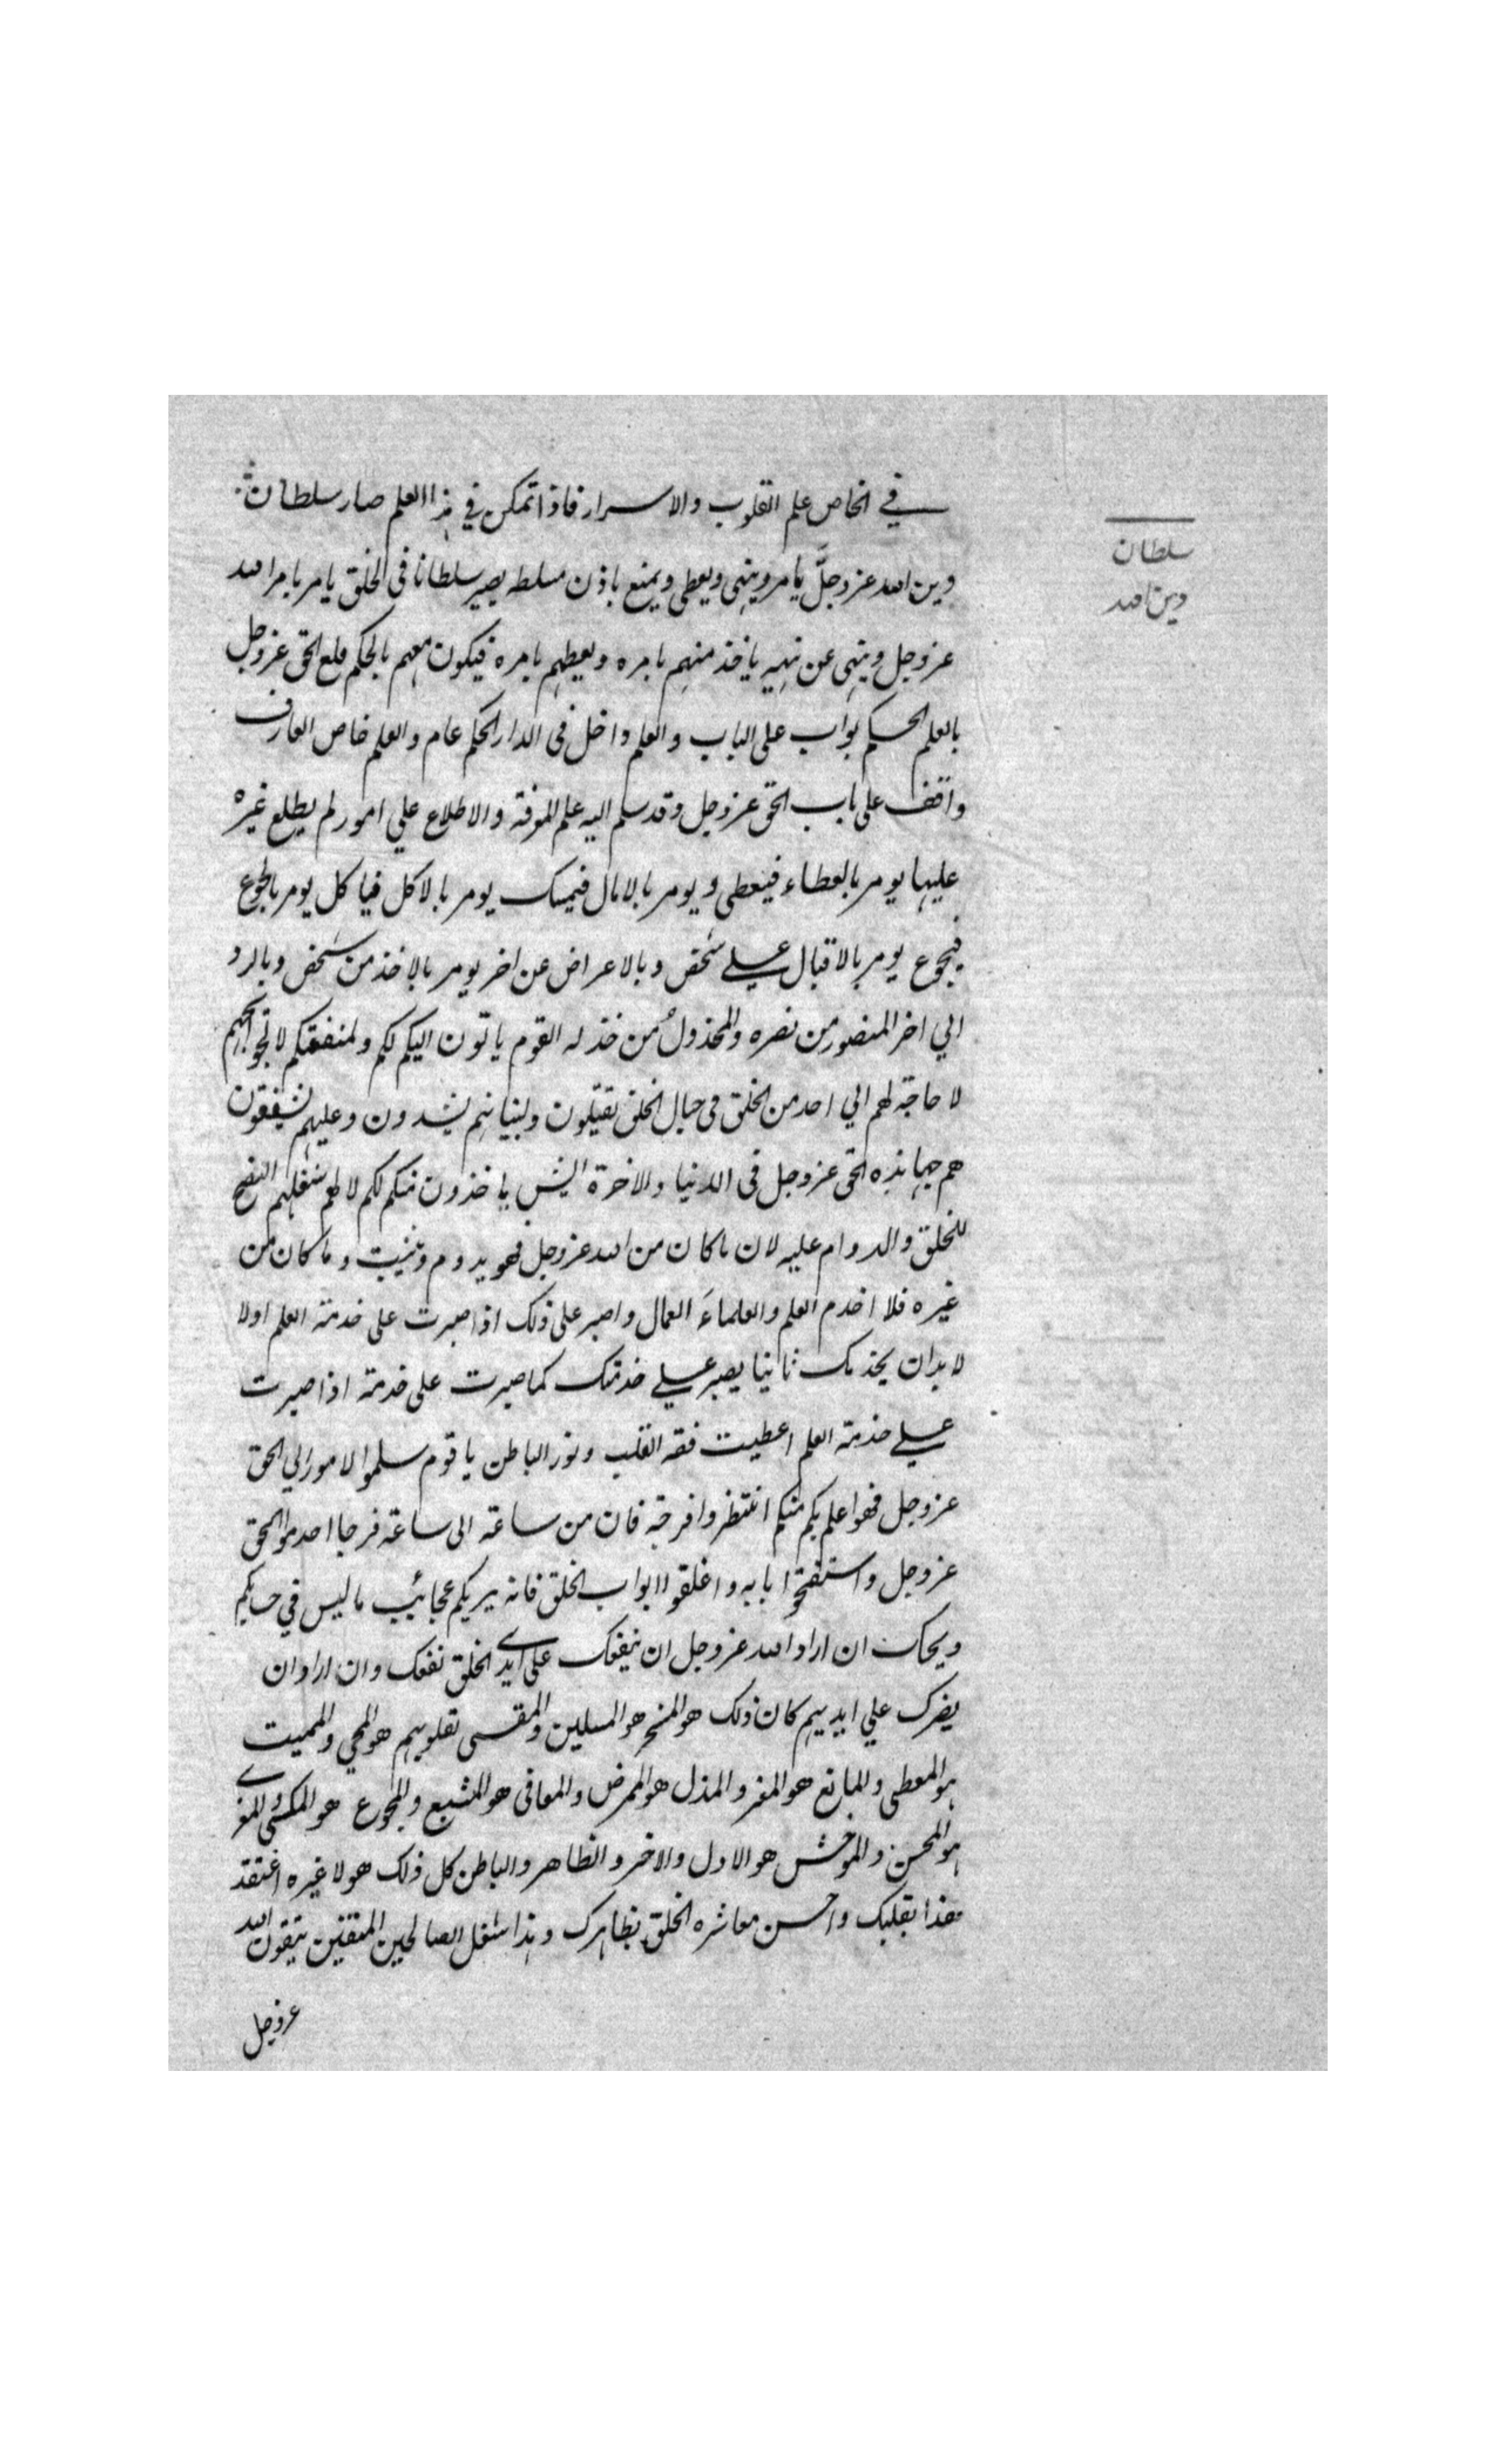 في الخاص علم القلوب والاسرار فاذا تمكن في هذا العلم صار سلطان
دين الله عز وجلَّ يامر وينهى ويعطى ويمنع باذن مسلطه يصير سلطانا فى الخلق يامر بامر الله
عز وجل وينهى عن نهيه ياخذ منهم بامره ويعطيهم بامره فيكون معهم بالحكم ومع الحق عز وجل
بالعلم الحكم بواب على الباب والعلم داخل فى الدار الحكم عام والعلم خاص العارف
واقف على باب الحق عز وجل وقد سلم اليه علم المعرفة والاطلاع علي امور لم يطلع غيره
عليها يومر بالعطاء فيعطى ويومر بالامال فيمسك يومر بالاكل فياكل يومر بالجوع
فيجوع يومر بالاقبال علي شخص وبالاعراض عن اخر يومر بالاخذ من شخص وبالرد
الي اخر المنصور من نصره والمخذولُ من خذله القوم ياتون اليكم لكم ولمنفعتكم لا لحوائجهم
لا حاجة لهم الي احد من الخلق فى حبال الخلق يفتلون ولبنيانهم يشدون وعليهم يشفقون
هم جهابذه الحق عز وجل فى الدنيا والاخرة ايش ياخذون منكم لكم لا لهم شغلهم النصح
للخلق والدوام عليه لان ما كان من الله عز وجل فهو يدوم ويثبت وما كان من
غيره فلا اخدم العلم والعلماءَ العمال واصبر على ذلك اذا صبرت على خدمة العلم اولا
لا بد ان يخدمك ثانيا يصبر علي خدمتك كما صبرت على خدمته اذا صبرت
علي خدمة العلم اعطيت فقه القلب ونور الباطن يا قوم سلموا الامور الي الحق
عز وجل فهو اعلم بكم منكم انتظروا فرجه فان من ساعة الى ساعة فرجا اخدموا الحق
عز وجل واستفتحوا بابه واغلقوا ابواب الخلق فانه يريكم عجائب ما ليس في حسابكم
ويحك ان اراد الله عز وجل ان ينفعك على ايدي الخلق نفعك وان اراد ان
يضرك علي ايديهم كان ذلك هو المسخر هو الملين والمقسى لقلوبهم هو المحى والمميت
هو المعطى والمانع هو المعز والمذل هو الممرض والمعافى هو المشبع والمجوع هو المكسى المعرى
هو المحسن والموحش هو الاول والاخر والظاهر والباطن كل ذلك هو لا غيره اعتقد
هذا بقلبك واحسن معاشره الخلق بظاهرك وهذا شغل الصالحين المتقين يتقون الله
عز وجل
سلطان
دين الله